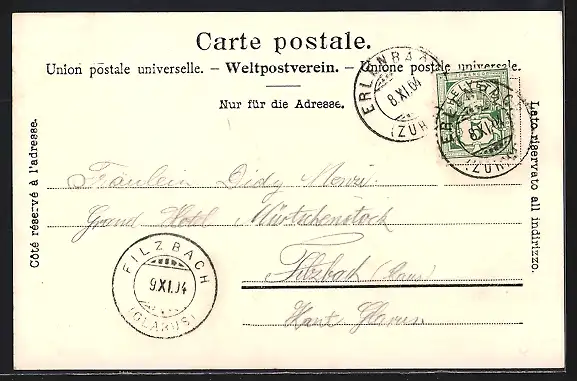 Carte postale.
Union postale universelle. – Weltpostverein. – Unione postale universale.
Nur für die Adresse.
Côté réservé à l'adresse.
Lato riservato all indirizzo.
ERLENBACH
8.XI.04
(ZÜRICH)
ERLENBACH
8.XI.04
(ZÜRICH)
5
Fräulein Didy
Grand Hotel Mürtschenstock
Filzbach
Kant. Glarus.
FILZBACH
9.XI.04
(GLARUS)